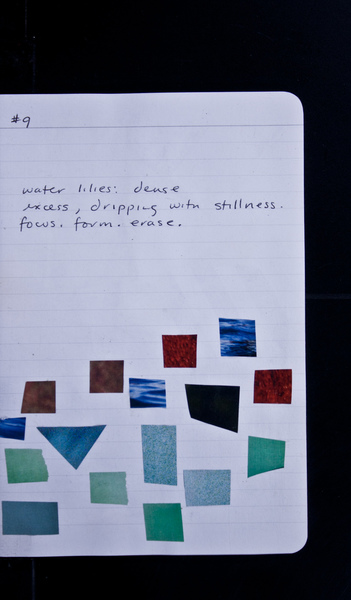 #9
water lilies: dense
excess, dripping with stillness.
focus. form. erase.